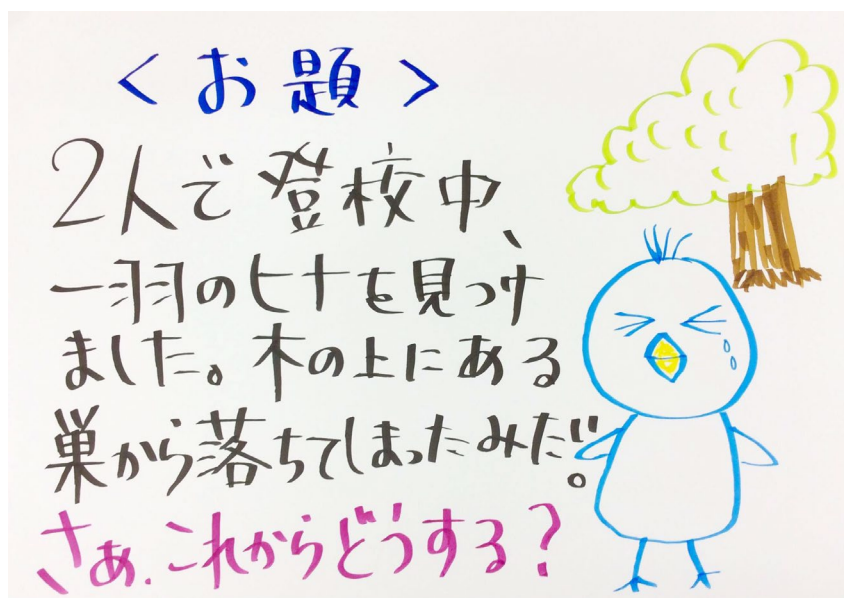 ＜お題＞
2人で登校中、
一羽のヒナを見つけ
ました。木の上にある
巣から落ちてしまったみたﾞ。
さぁ、これからどうする？